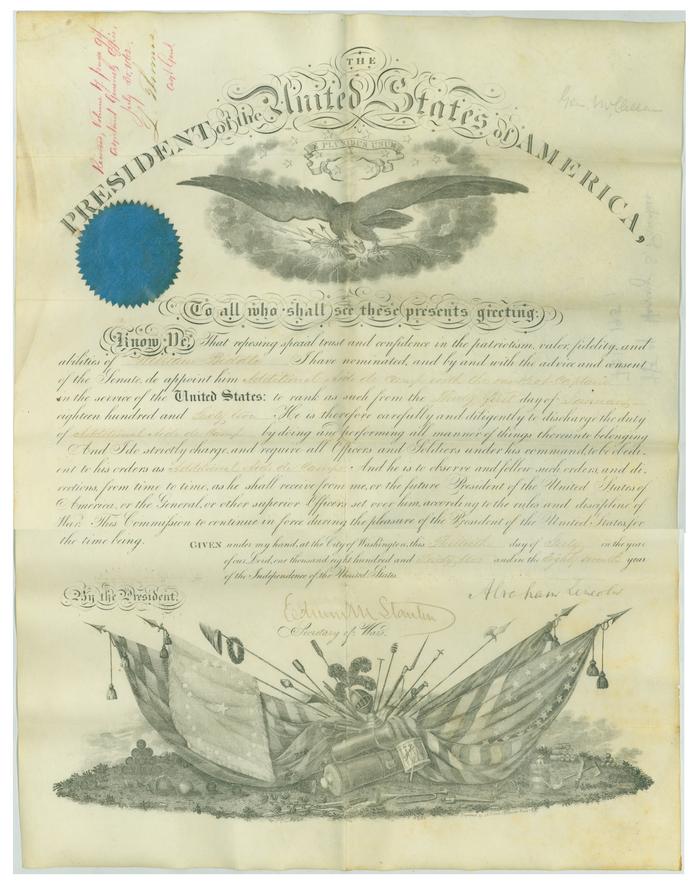 THE
PRESIDENT of the United States of AMERICA,
E PLURIBUS UNUM
Gen McClellan
Adjutant General's Office,
July 1862
L. Thomas
To all who shall see these presents greeting:
Know Ye, That reposing special trust and confidence in the patriotism, valor, fidelity, and
abilities of William Biddle I have nominated, and by and with the advice and consent
of the Senate, do appoint him Additional Aide de Camp with the rank of Captain
in the service of the United States: to rank as such from the Thirty first day of January
eighteen hundred and Sixty two. He is therefore carefully and diligently to discharge the duty
of Additional Aide de Camp by doing and performing all manner of things thereunto belonging
And I do strictly charge, and require all Officers and Soldiers under his command, to be obedi-
ent to his orders as Additional Aide de Camp. And he is to observe and follow such orders, and di-
rections, from time to time, as he shall receive from me, or the future President of the United States of
America, or the General, or other superior Officers set over him, according to the rules and discipline of
War. This Commission to continue in force during the pleasure of the President of the United States, for
the time being.
GIVEN under my hand, at the City of Washington, this day of July in the year
of our Lord, one thousand eight hundred and Sixty two and in the Eighty seventh year
of the Independence of the United States.
By the President,
Abraham Lincoln
Edwin M Stanton
Secretary of War.